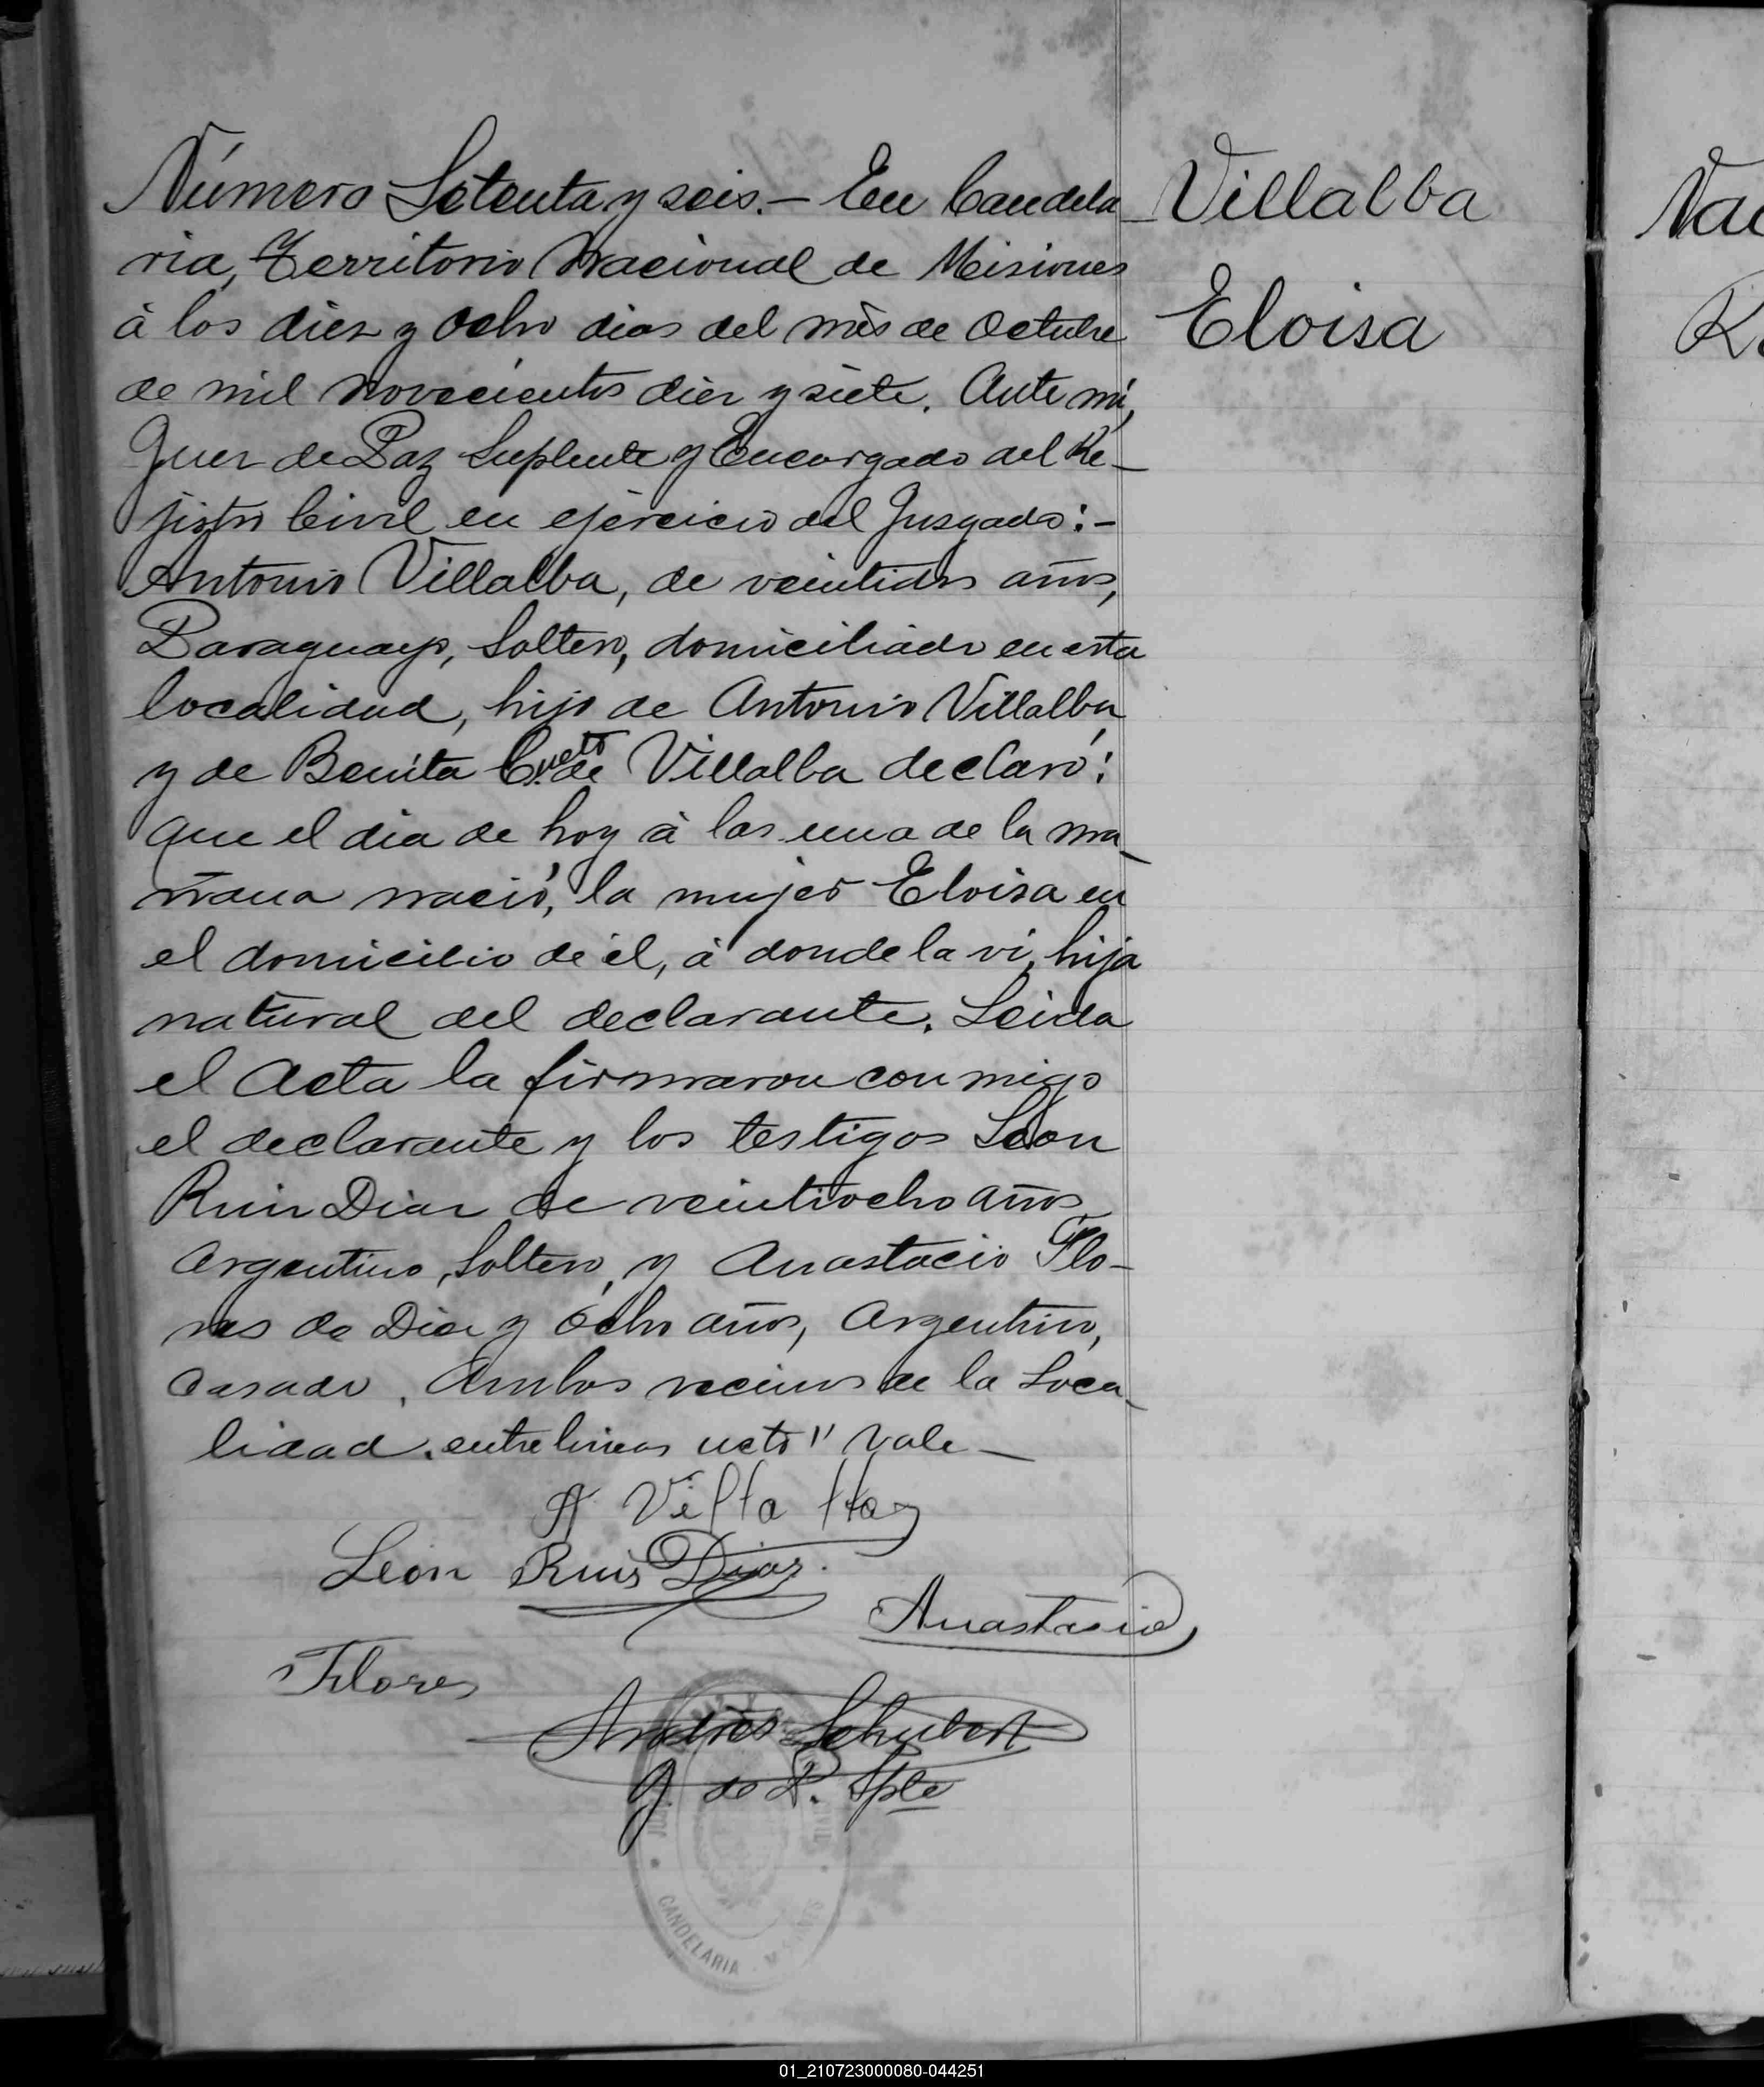 Número Setenta y seis.- En Candela
ria, Territorio Nacional de Misiones
à los diez y ocho dias del mès de Octubre
de mil novecientos diez y siete. Ante mi,
Juez de Paz Suplente y Encargado del Re-
jistro Civil en ejercicio del Jusgado:-
Antonio Villalba, de veintidos años,
Paraguayo, Soltero, domiciliado en esta
localidad, hijo de Antonio Villalba
y de Benita de Villalba declaró:
que el dia de hoy à las una de la ma-
ñana nació, la mujer Eloisa en
el domicilio de èl, à donde la vi, hija
natural del declarante. Leida
el Acta la firmaron con migo
el declarante y los testigos Leon
Ruiz Diaz de veintiocho años
Argentino, Soltero, y Anastacio Flo-
res de Diez y ocho años, Argentino,
Casado. Ambos vecinos de la Loca-
lidad. entrelineas ueto" Vale-
León Ruis Diaz.
Anastacio
Flores
Andrès Schubert
J. de P. Splte
CANDELARIA
Villalba
Eloisa
01_210723000080-044251